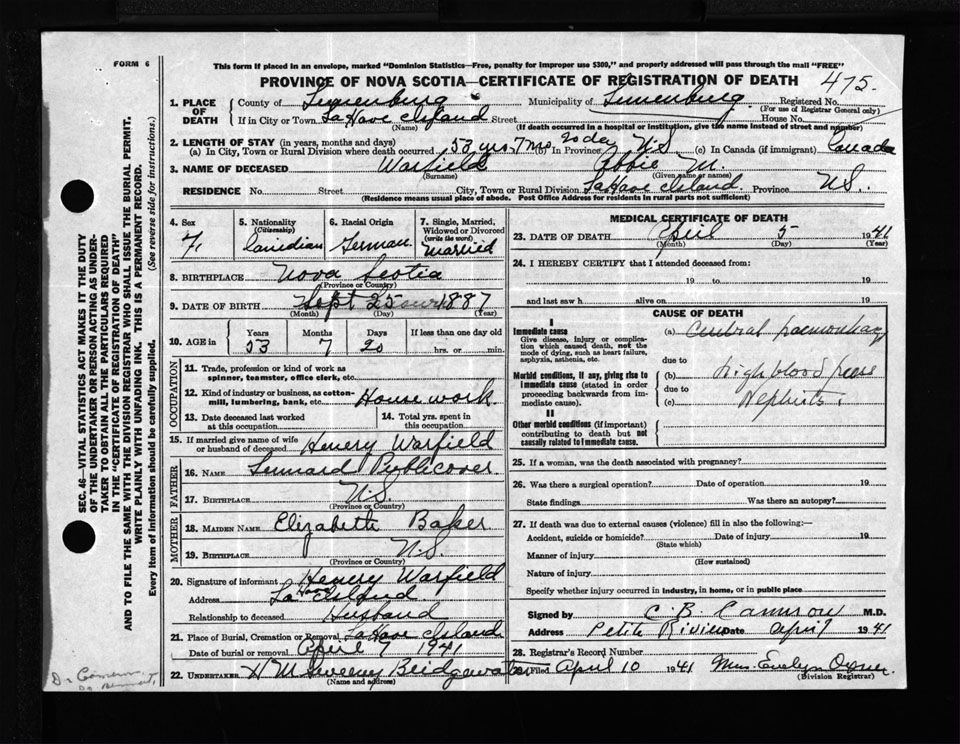 FORM 6
This form if placed in an envelope, marked "Dominion Statistics—Free, penalty for improper use $300," and properly addressed will pass through the mail "FREE"
PROVINCE OF NOVA SCOTIA—CERTIFICATE OF REGISTRATION OF DEATH
475.
1. PLACE OF DEATH
County of Lunenburg Municipality of Lunenburg Registered No.
(For use of Registrar General only)
If in City or Town LaHave Island Street House No.
(Name) (If death occurred in a hospital or institution, give the name instead of street and number)
2. LENGTH OF STAY (in years, months and days)
(a) In City, Town or Rural Division where death occurred 53 yrs. 7 mo. 20 day (b) In Province N S (c) In Canada (if immigrant) Canada
3. NAME OF DECEASED Warfield Abbie M.
(Surname) (Given name or names)
RESIDENCE No. Street City, Town or Rural Division LaHave Island. Province N S.
(Residence means usual place of abode. Post Office Address for residents in rural parts not sufficient)
4. Sex
F.
5. Nationality (Citizenship)
Canadian
6. Racial Origin
German
7. Single, Married, Widowed or Divorced (write the word)
Married
8. BIRTHPLACE Nova Scotia
(Province or Country)
9. DATE OF BIRTH Sept 25 1887
(Month) (Day) (Year)
10. AGE in
Years Months Days If less than one day old
53 7 20 hrs. or min.
OCCUPATION
11. Trade, profession or kind of work as spinner, teamster, office clerk, etc.
12. Kind of industry or business, as cotton-mill, lumbering, bank, etc. House work
13. Date deceased last worked at this occupation
14. Total yrs. spent in this occupation
15. If married give name of wife or husband of deceased Henery Warfield
FATHER
16. NAME Lennard Publicover
17. BIRTHPLACE N.S.
(Province or Country)
MOTHER
18. MAIDEN NAME Elizabeth Baker
19. BIRTHPLACE N.S.
(Province or Country)
20. Signature of informant Henery Warfield
Address LaHave Island
Relationship to deceased Husband
21. Place of Burial, Cremation or Removal LaHave Island
Date of burial or removal April 7 1941
22. UNDERTAKER H M Sweeny Bridgewater
(Name and address)
MEDICAL CERTIFICATE OF DEATH
23. DATE OF DEATH April 5 1941
(Month) (Day) (Year)
24. I HEREBY CERTIFY that I attended deceased from:
19 to 19
and last saw h alive on 19
CAUSE OF DEATH
I
Immediate cause
Give disease, injury or complication which caused death, not the mode of dying, such as heart failure, asphyxia, asthenia, etc.
(a) Cerebral haemorrhag
due to
Morbid conditions, if any, giving rise to immediate cause (stated in order proceeding backwards from immediate cause).
(b) high blood press
due to
(c) Nephritis
II
Other morbid conditions (if important) contributing to death but not causally related to immediate cause.
25. If a woman, was the death associated with pregnancy?
26. Was there a surgical operation? Date of operation 19
State findings Was there an autopsy?
27. If death was due to external causes (violence) fill in also the following:
Accident, suicide or homicide? Date of injury 19
(State which)
Manner of injury
(How sustained)
Nature of injury
Specify whether injury occurred in industry, in home, or in public place
Signed by C. B. Cameron M.D.
Address Petite Riviere Date April 7 1941
28. Registrar's Record Number
Filed April 10 1941 Mrs. Evelyn
(Division Registrar)
SEC. 46—VITAL STATISTICS ACT MAKES IT THE DUTY
OF THE UNDERTAKER OR PERSON ACTING AS UNDER-
TAKER TO OBTAIN ALL THE PARTICULARS REQUIRED
IN THE "CERTIFICATE OF REGISTRATION OF DEATH"
AND TO FILE THE SAME WITH THE DIVISION REGISTRAR WHO SHALL ISSUE THE BURIAL PERMIT.
WRITE PLAINLY WITH UNFADING INK. THIS IS A PERMANENT RECORD.
Every item of information should be carefully supplied. (See reverse side for instructions).
Dr Cameron